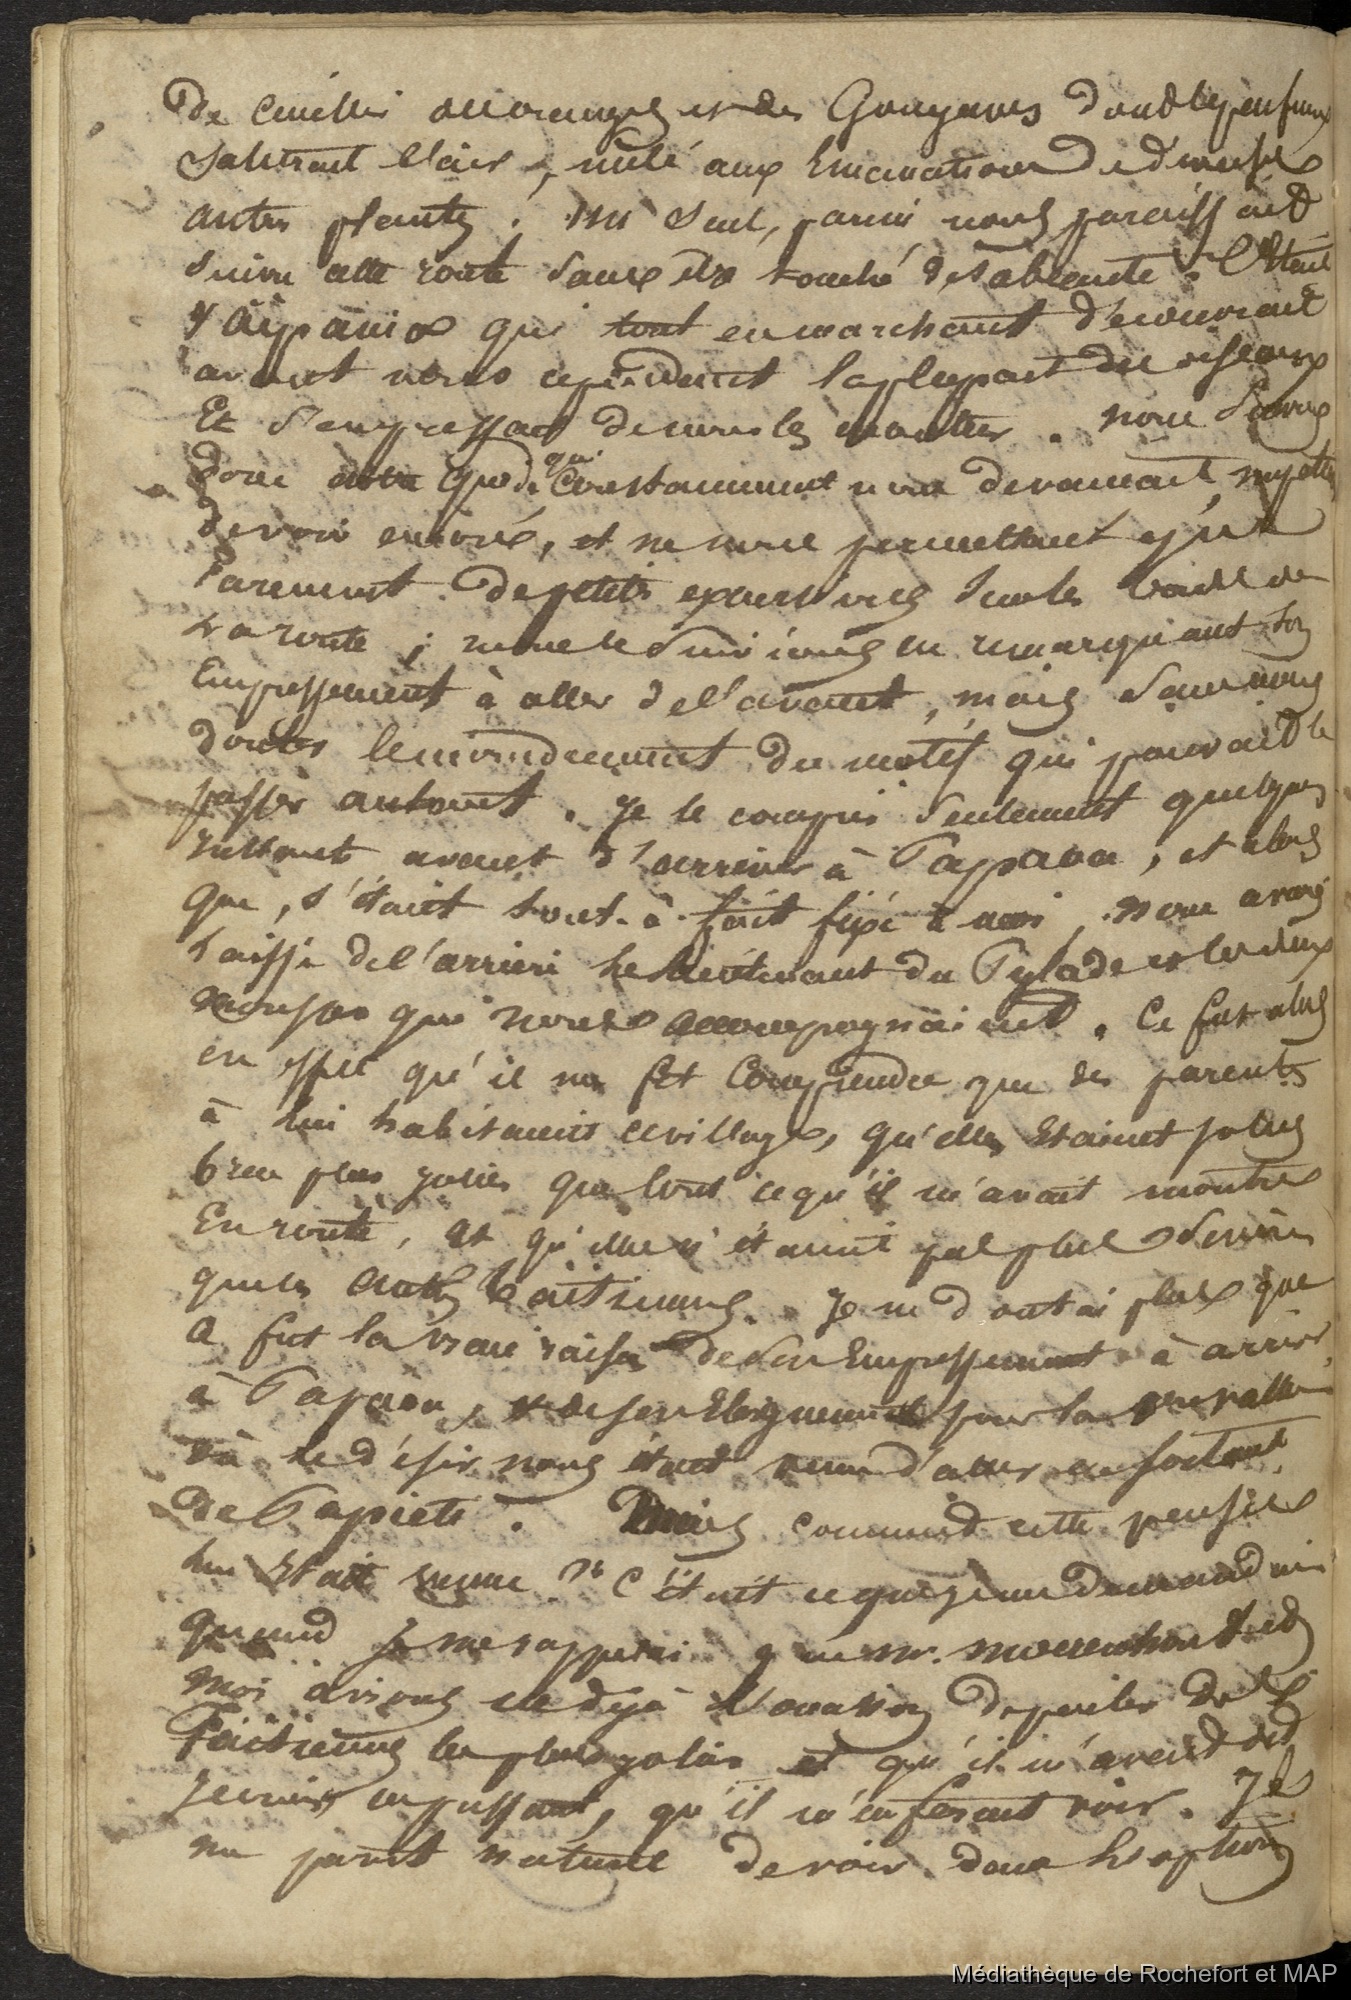 de cueillir des oranges et des Gouyaves dont les parfums
saturaient l'air, mêlé aux Emanations de diverses
autres plantes. Un seul, parmi nous paraissait
suivre cette route sans être touché de sa beauté. C'était
qui tout en marchant découvrait
avant nous cependant la plupart des oiseaux
Et s'empressait de nous les montrer. nous suivions
donc notre Guide qui Constamment nous devançait,
de voir encore, et ne nous permettant que
rarement de petites excursions sur les bords de
la route ; nous le suivions en remarquant son
Empressement à aller de l'avant, mais sans nous
douter le moindrement du motif qui pouvait le
presser autant. Je le compris seulement quelques
instants avant d'arriver à Papaoa, et alors
que, s'étant tout-à-fait fixé à moi, nous avons
laissé de l'arrière le lieutenant du Pylade et les deux
mousses qui nous accompagnaient. Ce fut alors
en effet qu'il me fit Comprendre que des parentes
à lui habitaient ce village, qu'elles Etaient jolies
bien plus jolies que tout ce qu'il m'avait montré
En route, et qu'elles n'étaient pas plus sévères
que les autres Taïtiennes. Je ne doutai plus que
ce fut la vraie raison de son Empressement à arriver
à Papaoa, et de son Eloignement pour la vallée
où le désir nous était venu d'aller en sortant
de Papiete. Mais comment cette pensée
lui Etait venue ? C'était ce que je me demandais
quand je me rappelai que Mr. Moerenhout et
moi avions eu déjà l'occasion de parler des
Taïtiennes les plus jolies et qu'il m'avait dit
en passant, qu'il m'en ferait voir. Il
me parut naturel de voir dans les